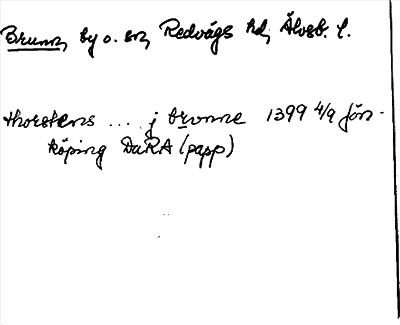 Brunn, by o. sn, Redvägs hd, Älvsb. l.
thorstens ... j brvnne 1399 4/9 Jön-
köping DaRA (papp)